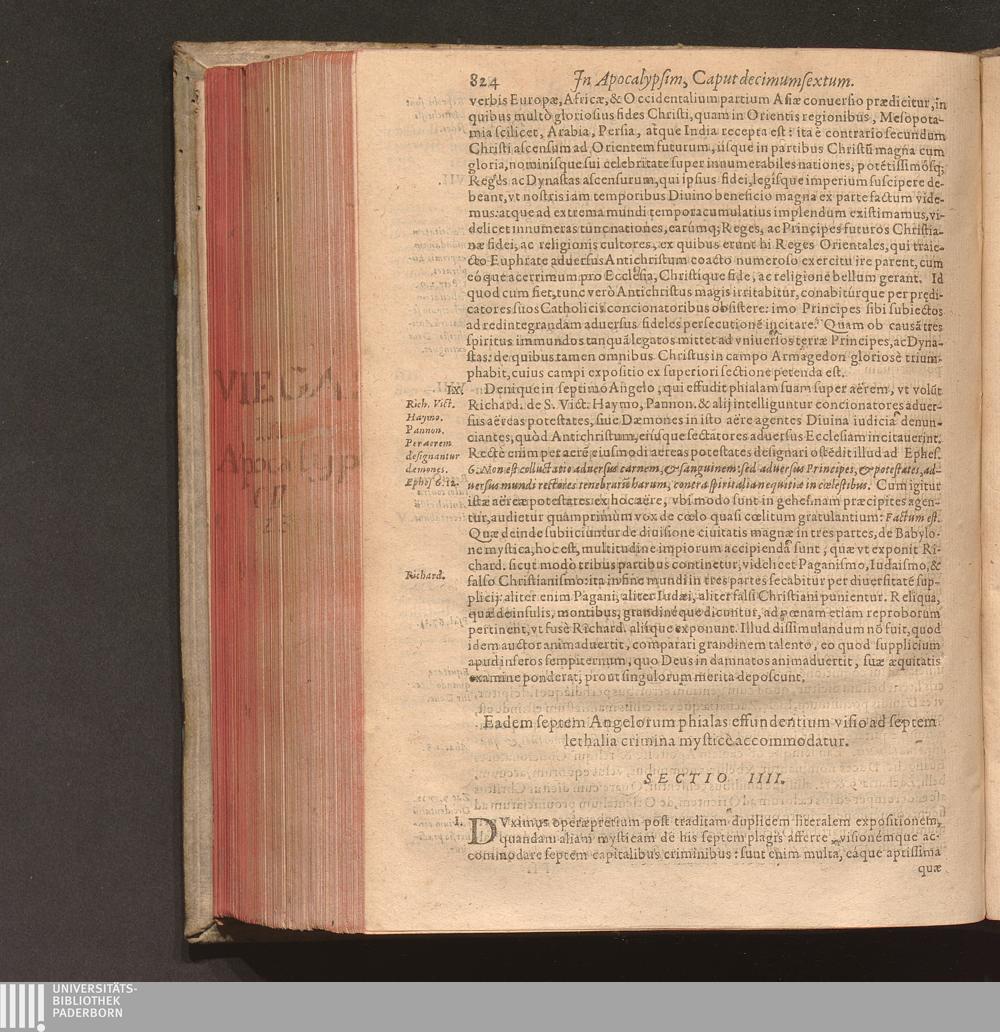 824 In Apocalypsim, Caput decimumsextum.
verbis Europæ, Africæ, & Occidentalium partium Asiæ conuersio prædicitur, in
quibus multò gloriosius fides Christi, quam in Orientis regionibus, Mesopota-
mia scilicet, Arabia, Persia, atque India recepta est: ita è contrario secundum
Christi ascensum ad Orientem futurum, vsque in partibus Christū magna cum
gloria, nominísque sui celebritate super innumerabiles nationes, potētissimósq;
Reges ac Dynastas ascensurum, qui ipsius fidei, legísque imperium suscipere de-
beant, vt nostris iam temporibus Diuino beneficio magna ex parte factum vide-
mus: atque ad extrema mundi tempora cumulatius implendum existimamus, vi-
delicet innumeras tunc nationes, earumq; Reges, ac Principes futuros Christia-
næ fidei, ac religionis cultores, ex quibus erunt hi Reges Orientales, qui traie-
cto Euphrate aduersus Antichristum coacto numeroso exercitu ire parent, cum
eóque acerrimum pro Ecclesia, Christique fide, ac religione bellum gerant. Id
quod cum fiet, tunc verò Antichristus magis irritabitur, conabitúrque per prędi-
catores suos Catholicis concionatoribus obsistere: imo Principes sibi subiectos
ad redintegrandam aduersus fideles persecutionē incitare. Quam ob causā tres
spiritus immundos tanquā legatos mittet ad vniuersos terræ Principes, ac Dyna-
stas: de quibus tamen omnibus Christus in campo Armagedon gloriosè trium-
phabit, cuius campi expositio ex superiori sectione petenda est.
IX. Denique in septimo Angelo, qui effudit phialam suam super aërem, vt volūt
Rich. Vict. Richard. de S. Vict. Haymo, Pannon. & alij intelliguntur concionatores aduer-
Haymo. sus aëreas potestates, siue Dæmones in isto aëre agentes Diuina iudicia denun-
Pannon. ciantes, quòd Antichristum, eiúsque sectatores aduersus Ecclesiam incitauerint.
Per aerem Rectè enim per aerē eiusmodi aëreas potestates designari ostēdit illud ad Ephes.
designantur 6. Non est colluctatio aduersus carnem, & sanguinem: sed aduersus Principes, & potestates, ad-
dæmones. uersus mundi rectores tenebrarū harum, contra spiritalia nequitiæ in cœlestibus. Cum igitur
Ephes. 6. 12. istæ aëreæ potestates ex hoc aëre, vbi modo sunt in gehennam præcipites agen-
tur, audietur quamprimum vox de cœlo quasi cœlitum gratulantium: Factum est.
Quæ deinde subiiciuntur de diuisione ciuitatis magnæ in tres partes, de Babylo-
ne mystica, hoc est, multitudine impiorum accipienda sunt, quæ vt exponit Ri-
chard. sicut modò tribus partibus continetur, videlicet Paganismo, Iudaismo, &
Richard. falso Christianismo: ita in fine mundi in tres partes secabitur per diuersitatē sup-
plicij: aliter enim Pagani, aliter Iudæi, aliter falsi Christiani punientur. Reliqua,
quæ de insulis, montibus, grandinéque dicuntur, ad pœnam etiam reproborum
pertinent, vt fusè Richard. aliíque exponunt. Illud dissimulandum nō fuit, quod
idem auctor animaduertit, comparari grandinem talento, eo quod supplicium
apud inferos sempiternum, quo Deus in damnatos animaduertit, suæ æquitatis
examine ponderat, prout singulorum merita deposcunt.
Eadem septem Angelorum phialas effundentium visio ad septem
lethalia crimina mysticè accommodatur.
SECTIO IIII.
I. DVximus operæpretium post traditam duplicem literalem expositionem,
quandam aliam mysticam de his septem plagis afferre, visionémque ac-
commodare septem capitalibus criminibus: sunt enim multa, eáque aptissima
quæ
VIEGA.
in
Apocalyp
UNIVERSITÄTS-
BIBLIOTHEK
PADERBORN